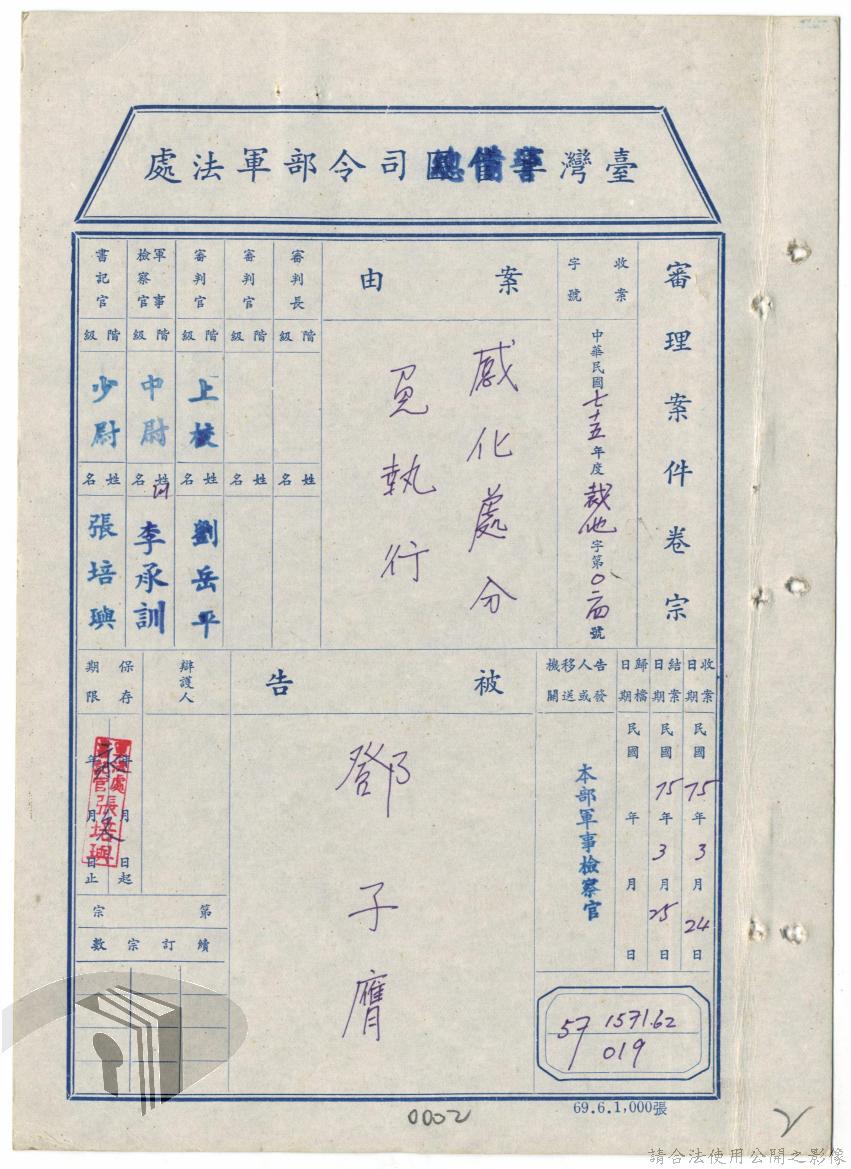 臺灣警備總司令部軍法處
審理案件卷宗
收案字號
中華民國七十五年度裁他字第0二四號
案由
感化處分
免執行
審判長
階級
姓名
審判官
階級
姓名
審判官
階級
上校
姓名
劉岳平
軍事檢察官
階級
中尉
姓名
李承訓
書記官
階級
少尉
姓名
張培興
收案日期
民國75年3月24日
結案日期
民國75年3月25日
歸檔日期
民國 年 月 日
告發人或移送機關
本部軍事檢察官
被告
鄧子膺
辯護人
保存期限
年 月 日起
年 月 日止
永久
張培興
第 宗
續訂宗數
57 1571.62
019
69.6.1,000張
0002
2
請合法使用公開之影像